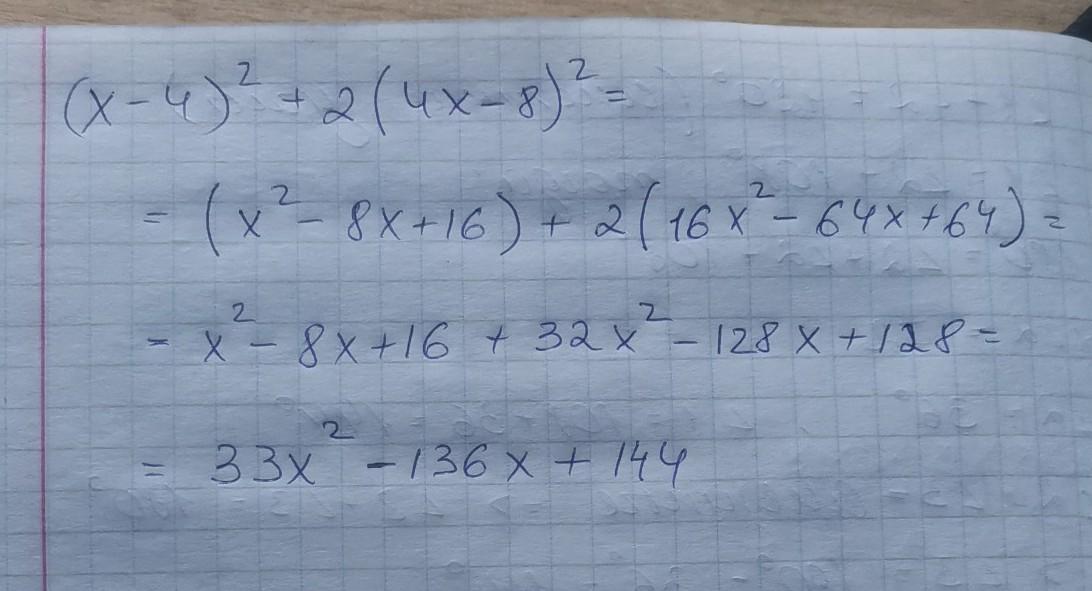 (x-4)² + 2(4x-8)² =
= (x² - 8x+16) + 2(16x² - 64x+64) =
= x² - 8x+16 + 32x² - 128x+128 =
= 33x² - 136x + 144